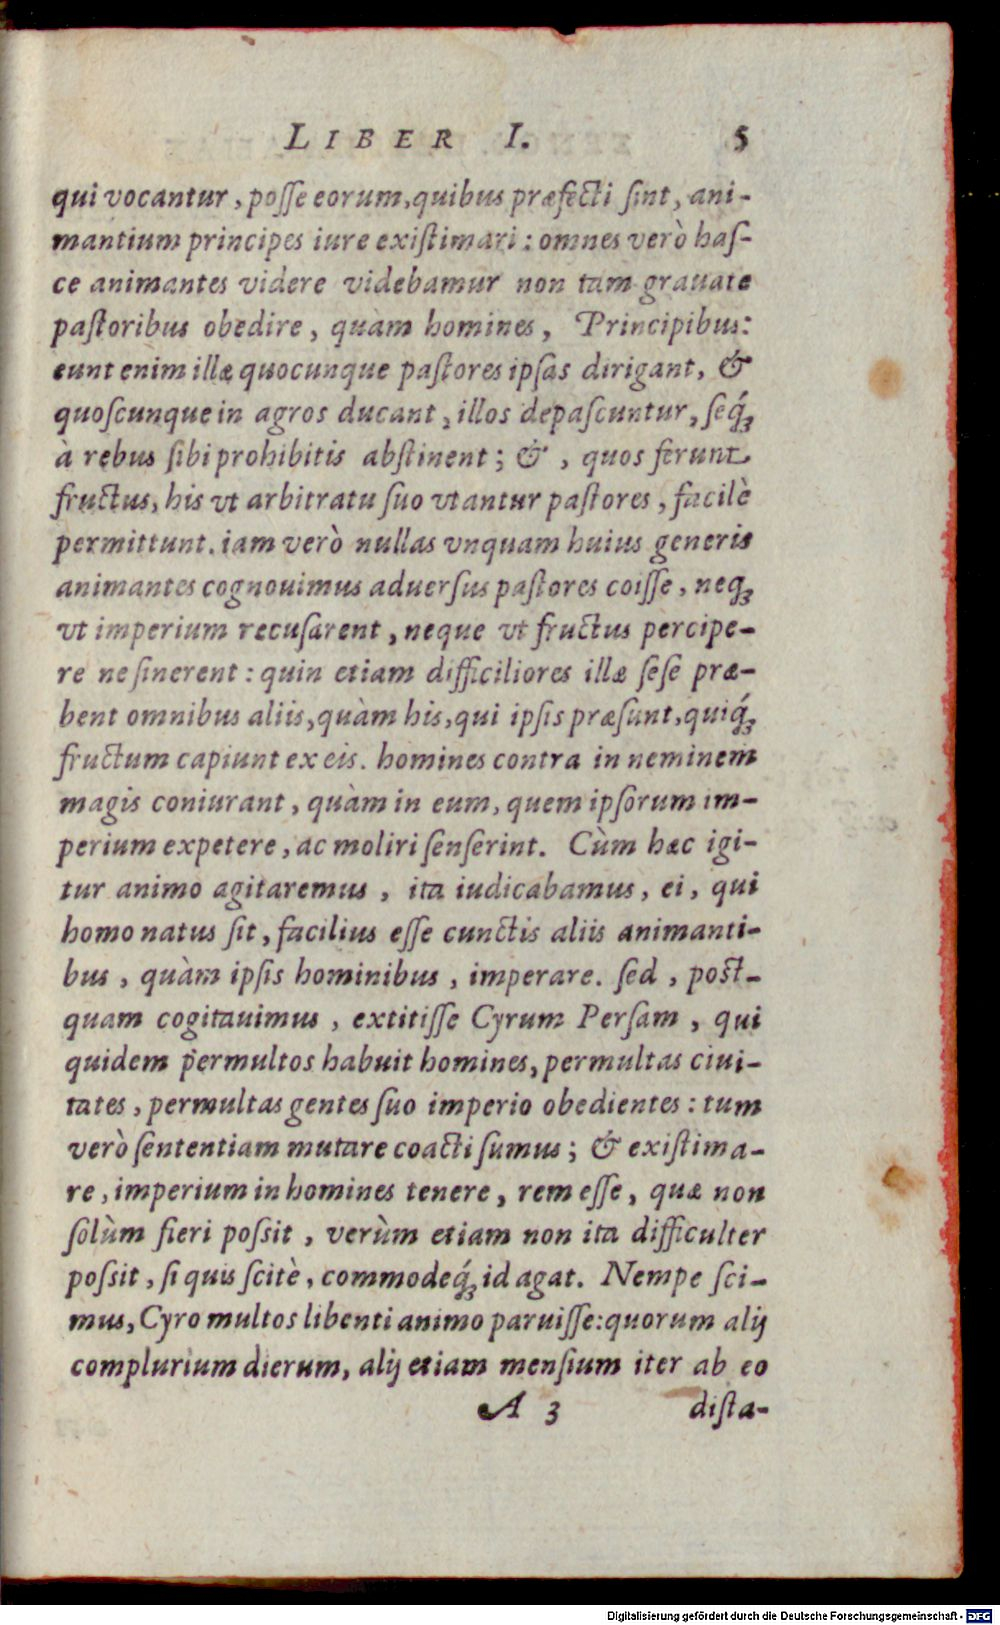 LIBER I. 5
qui vocantur, poſſe eorum, quibus præfecti ſint, ani-
mantium principes iure exiſtimari: omnes verò haſ-
ce animantes videre videbamur non tam grauate
paſtoribus obedire, quàm homines, Principibus:
eunt enim illæ quocunque paſtores ipſas dirigant, &
quoſcunque in agros ducant, illos depaſcuntur, ſeq́ꝫ
à rebus ſibi prohibitis abſtinent; &, quos ferunt
fructus, his vt arbitratu ſuo vtantur paſtores, facilè
permittunt. iam verò nullas vnquam huius generis
animantes cognouimus aduerſus paſtores coiſſe, neqꝫ
vt imperium recuſarent, neque vt fructus percipe-
re ne ſinerent: quin etiam difficiliores illæ ſeſe præ-
bent omnibus aliis, quàm his, qui ipſis præſunt, quiq́ꝫ
fructum capiunt ex eis. homines contra in neminem
magis coniurant, quàm in eum, quem ipſorum im-
perium expetere, ac moliri ſenſerint. Cùm hæc igi-
tur animo agitaremus, ita iudicabamus, ei, qui
homo natus ſit, facilius eſſe cunctis aliis animanti-
bus, quàm ipſis hominibus, imperare. ſed, poſt-
quam cogitauimus, extitiſſe Cyrum Perſam, qui
quidem permultos habuit homines, permultas ciui-
tates, permultas gentes ſuo imperio obedientes: tum
verò ſententiam mutare coacti ſumus; & exiſtima-
re, imperium in homines tenere, rem eſſe, quæ non
ſolùm fieri poſsit, verùm etiam non ita difficulter
poſsit, ſi quis ſcitè, commodeq́ꝫ id agat. Nempe ſci-
mus, Cyro multos libenti animo paruiſſe: quorum alij
complurium dierum, alij etiam menſium iter ab eo
A 3 diſta-
Digitalisierung gefördert durch die Deutsche Forschungsgemeinschaft - DFG